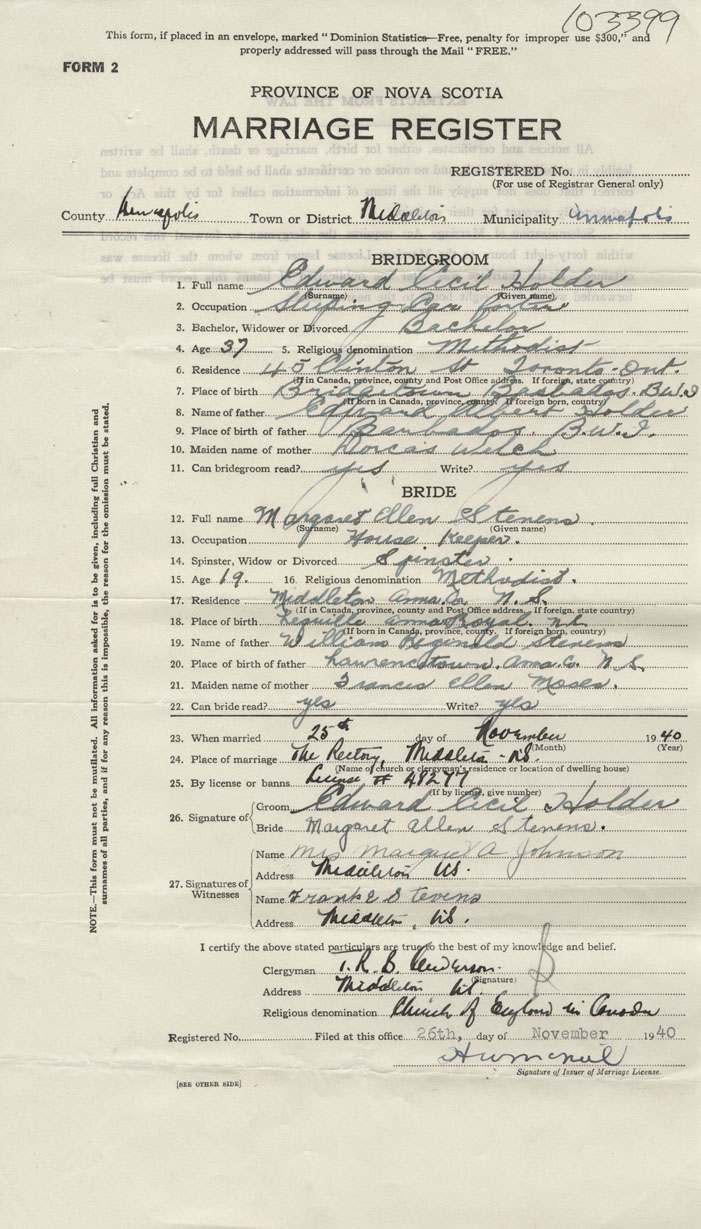 103399
This form, if placed in an envelope, marked "Dominion Statistics—Free, penalty for improper use $300," and
properly addressed will pass through the Mail "FREE."
FORM 2
PROVINCE OF NOVA SCOTIA
MARRIAGE REGISTER
REGISTERED No.
(For use of Registrar General only)
County Annapolis Town or District Middleton Municipality Annapolis
BRIDEGROOM
1. Full name Edward Cecil Holder
(Surname) (Given name)
2. Occupation Sleeping Car Porter
3. Bachelor, Widower or Divorced Bachelor
4. Age 37 5. Religious denomination Methodist
6. Residence 45 Clinton St Toronto-Ont.
(If in Canada, province, county and Post Office address. If foreign, state country)
7. Place of birth Bridgetown Barbados. B.W.I
(If born in Canada, province, county. If foreign born, country)
8. Name of father Edward Albert Holder
9. Place of father Barbados. B.W.I.
10. Maiden name of mother Dorcas Welch
11. Can bridegroom read? yes Write? yes
BRIDE
12. Full name Margaret Ellen Stevens.
(Surname) (Given name)
13. Occupation House Keeper.
14. Spinster, Widow or Divorced Spinster.
15. Age 19. 16. Religious denomination Methodist.
17. Residence Middleton Anna. Co. N. S.
(If in Canada, province, county and Post Office address. If foreign, state country)
18. Place of birth Lequille anna Royal. N.S.
(If born in Canada, province, county. If foreign born, country)
19. Name of father William Reginald Stevens
20. Place of birth of father Lawrencetown. Anna. Co. N. S.
21. Maiden name of mother Frances Ellen Moses.
22. Can bride read? yes Write? yes
23. When married 25th day of November 1940
(Month) (Year)
24. Place of marriage The Rectory, Middleton - N.S.
(Name of church or clergyman's residence or location of dwelling house)
25. By license or banns License # 48277
(If by license, give number)
26. Signature of
Groom Edward Cecil Holder
Bride Margaret Ellen Stevens.
27. Signatures of Witnesses
Name Mrs A Johnson
Address Middleton NS.
Name Frank E Stevens
Address Middleton, NS.
I certify the above stated particulars are true to the best of my knowledge and belief.
Clergyman T. R. B. Anderson.
(Signature)
Address Middleton NS.
Religious denomination Church of England in Canada
Registered No. Filed at this office 26th, day of November 1940
Signature of Issuer of Marriage License.
[SEE OTHER SIDE]
NOTE.—This form must not be mutilated. All information asked for is to be given, including full Christian and
surnames of all parties, and if for any reason this is impossible, the reason for the omission must be stated.